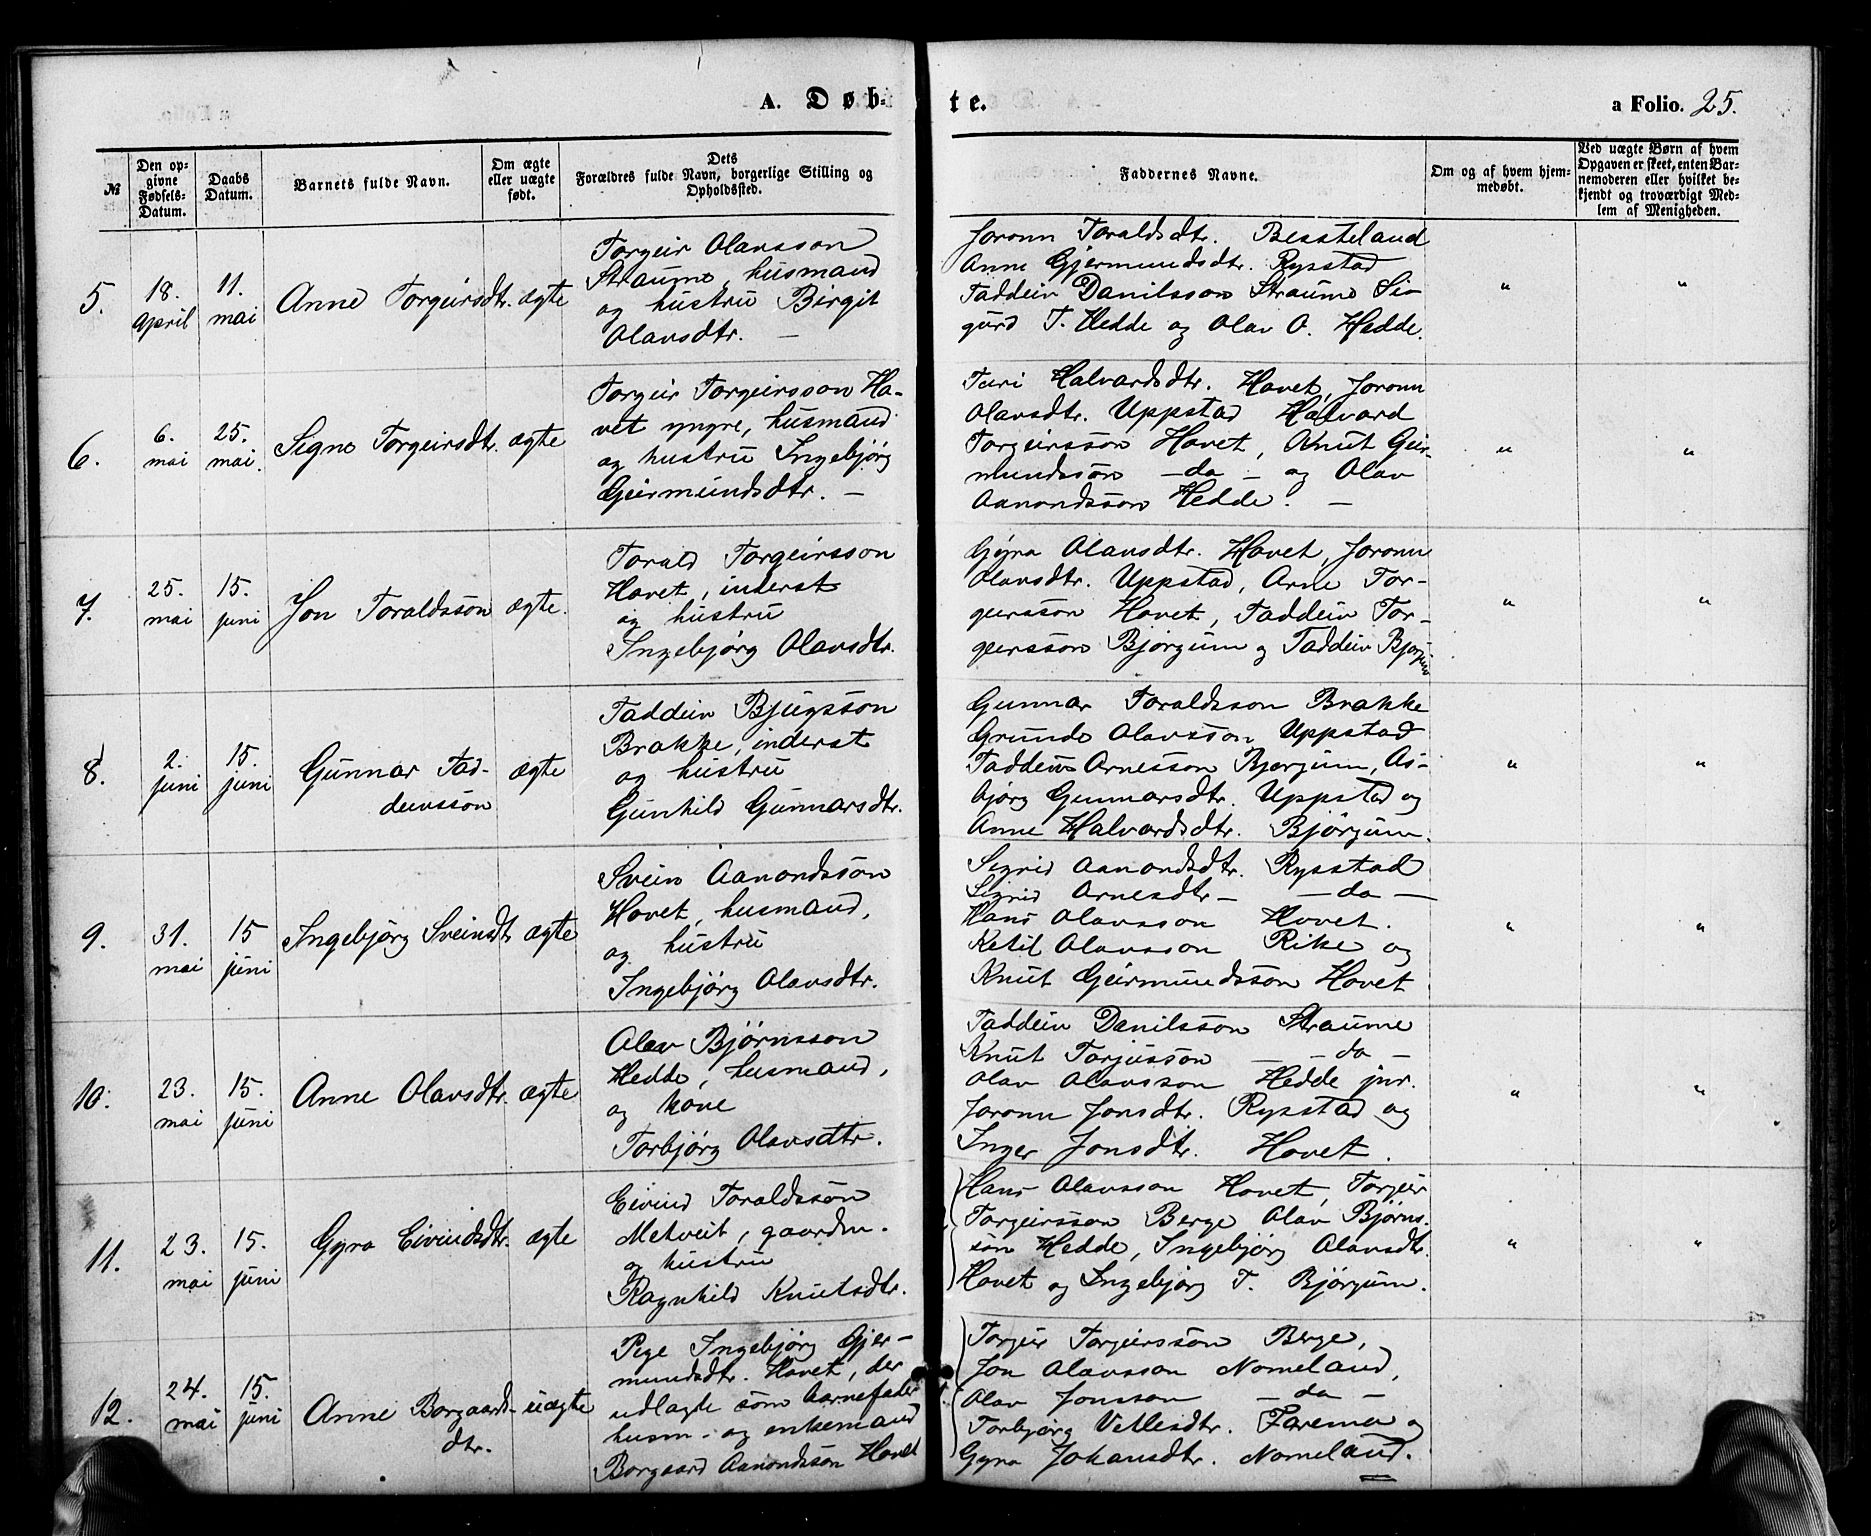 A. Døb-
te.
a Folio. 25.
№
Den op-
givne
Fødsels-
Datum.
Daabs
Datum.
Barnets fulde Navn.
Om ægte
eller uægte
født.
Dets
Forældres fulde Navn, borgerlige Stilling og
Opholdssted.
Faddernes Navne.
Om og af hvem hjem-
medøbt.
Ved uægte Børn af hvem
Opgaven er skeet, enten Bar-
nemoderen eller hvilket be-
kjendt og troværdigt Med-
lem af Menigheden.
5.
18.
april
11.
mai
Anne Torgeirsdtr.
ægte
Torgeir Olavsson
Straume, husmand
og hustru Birgit
Olavsdtr. —
Joronn Toraldsdtr. Bessteland
Anne Gjermundsdtr. Rysstad
Taddeiv Danilsson Straume Si-
gurd T. Hedde og Olav O. Hedde.
"
"
6.
6.
mai
25.
mai.
Signe Torgeirsdtr.
ægte
Torgeir Torgeirsson Ho-
vet yngre, husmand
og hustru Ingebjørg
Geirmundsdtr. —
Turi Halvardsdtr. Hovet, Joronn
Olavsdtr. Uppstad Halvard
Torgeirsson Hovet, Knut Geir-
mundsson — da — og Olav
Aanondsson Hedde. —
"
"
7.
25.
mai
15.
juni
Jon Toraldsson
ægte.
Torald Torgeirsson
Hovet, inderst
og hustru
Ingebjørg Olavsdtr.
Gyro Olavsdtr. Hovet, Joronn
Olavsdtr. Uppstad, Arne Tor-
geirsson Hovet, Taddeiv Tor-
geirsson Bjørgum og Taddeiv Bjørgum
"
"
8.
2.
juni
15.
juni
Gunnar Tad-
deivsson
ægte
Taddeiv Bjugsson
Brokke, inderst
og hustru
Gunhild Gunnarsdtr.
Gunnar Toraldsson Brokke
Grunde Olavsson Uppstad
Taddeiv Arnesson Bjørgum, As-
bjørg Gunnarsdtr. Uppstad og
Anne Halvardsdtr. Bjørgum.
"
"
9.
31.
mai
15
juni
Ingebjørg Sveinsdt
ægte
Svein Aanondsson
Hovet, husmand,
og hustru
Ingebjørg Olavsdtr.
Sigrid Aanondsdtr. Rysstad
Sigrid Arnesdtr — da —
Hans Olavsson Hovet.
Ketil Olavsson Rike og
Knut Geirmundsson Hovet
"
"
10.
23.
mai
15.
juni
Anne Olavsdtr.
ægte
Olav Bjørnsson
Hedde, husmand,
og kone
Torbjørg Olavsdtr.
Taddeiv Danilsson Straume
Knut Torjusson — da —
Olav Olavsson Hedde jnr.
Joronn Jonsdtr. Rysstad og
Inger Jonsdtr. Hovet.
"
"
11.
23.
mai
15.
juni
Gyro Eivindsdtr.
ægte
Eivind Toraldsson
Metveit, gaardm.
og hustru
Ragnhild Knutsdtr.
Hans Olavsson Hovet, Torgeir
Torgeirsson Berge Olav Bjørns-
son Hedde, Ingebjørg Olavsdtr.
Hovet og Ingebjørg T. Bjørgum.
"
"
12.
24.
mai
15.
juni
Anne Borgaards-
dtr.
uægte
Pige Ingebjørg Gjer-
mundsdtr. Hovet, der
udlagte som barnefader
husm- og enkemand
Borgaard Aanondsson Hovet
Torgeir Torgeirsson Berge,
Jon Olavsson Nomeland,
Olav Jonsson — da —
Torbjørg Vetlesdtr. Farema og
Gyro Johansdtr. Nomeland.